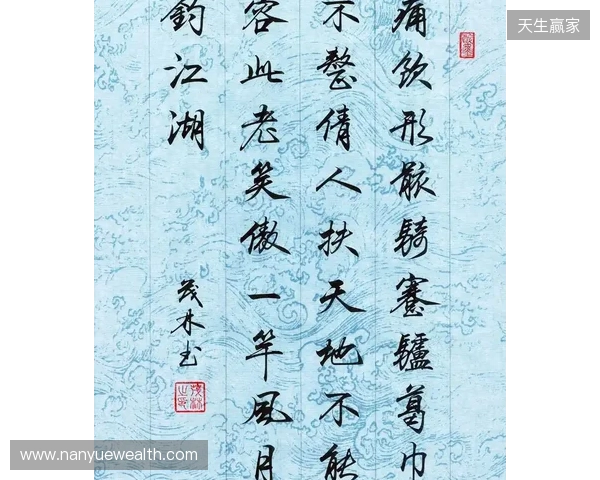 天生赢家
痛飲形骸騎蹇驢葛巾
不整倩人扶天地不能
容此老笑傲一竿風月
釣江湖
茂林书
www.nanyuewealth.com